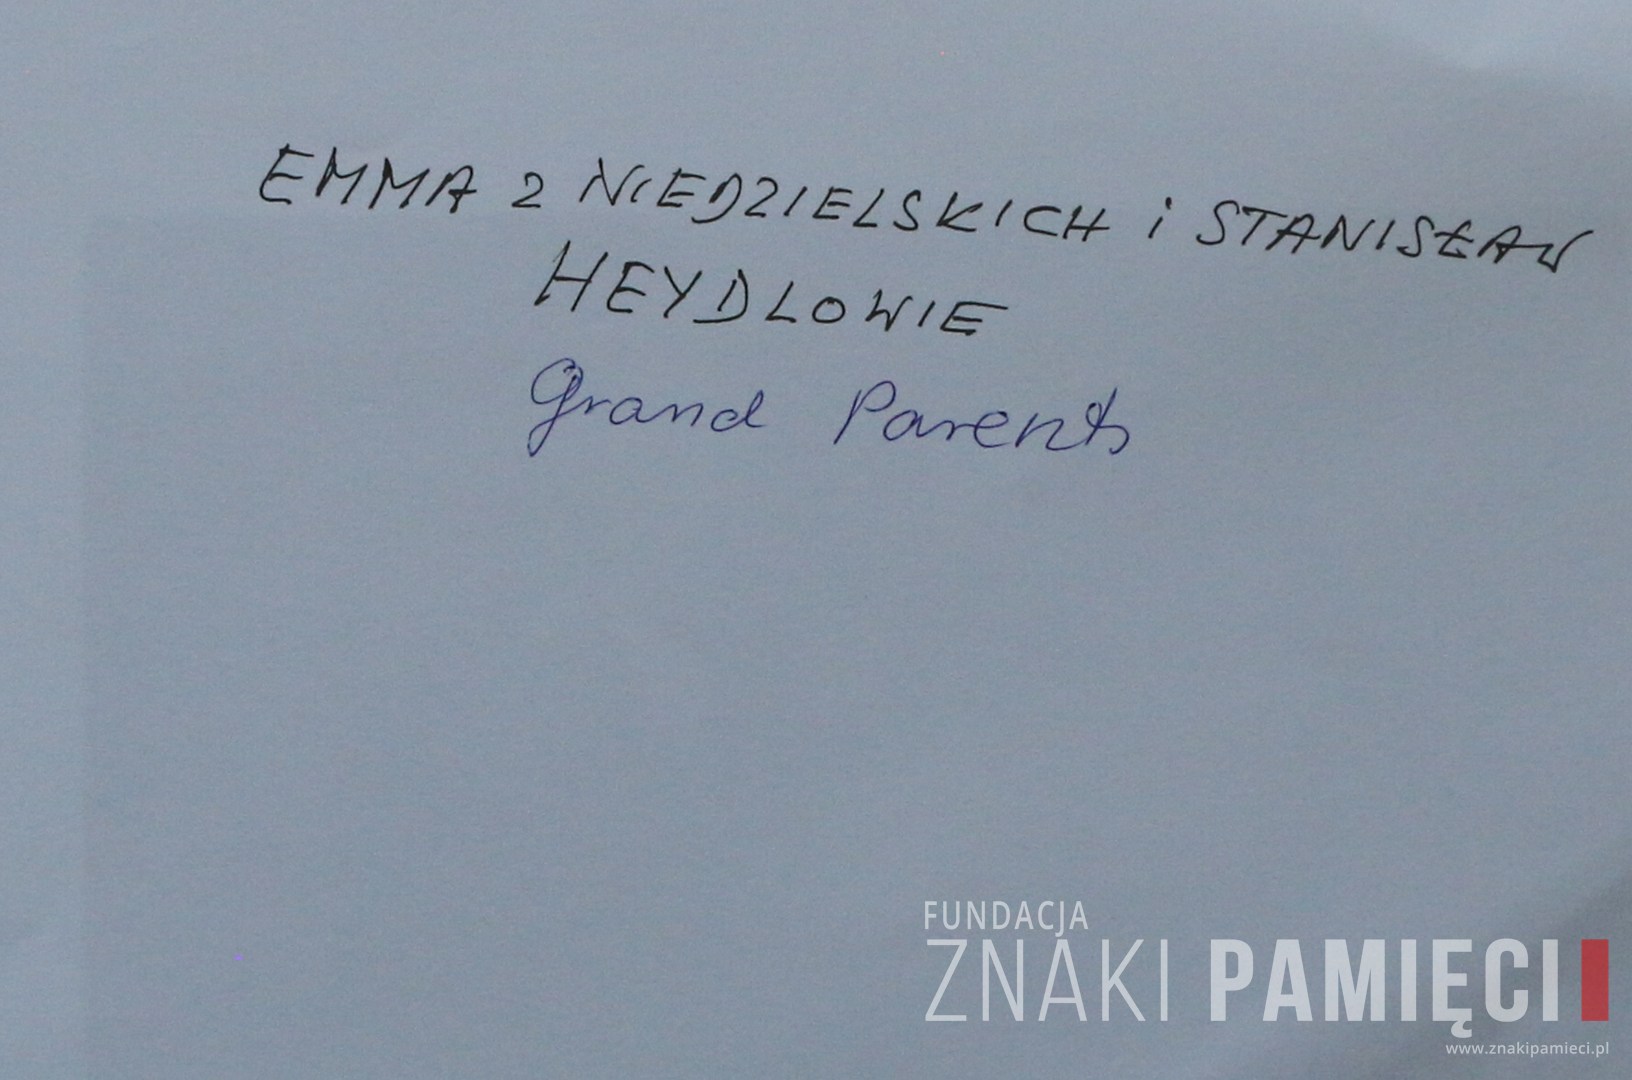 EMMA Z NIEDZIELSKICH i STANISŁAW
HEYDLOWIE
Grand Parents
FUNDACJA
ZNAKI PAMIĘCI
www.znakipamieci.pl